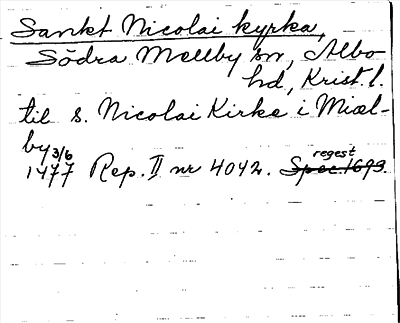 Sankt Nicolai kyrka,
Södra Mellby sn, Albo
hd, Krist l.
til s. Nicolai Kirke i Miæl-
by 3/6
1477 Rep. II nr 4042. regest Spec 1693.